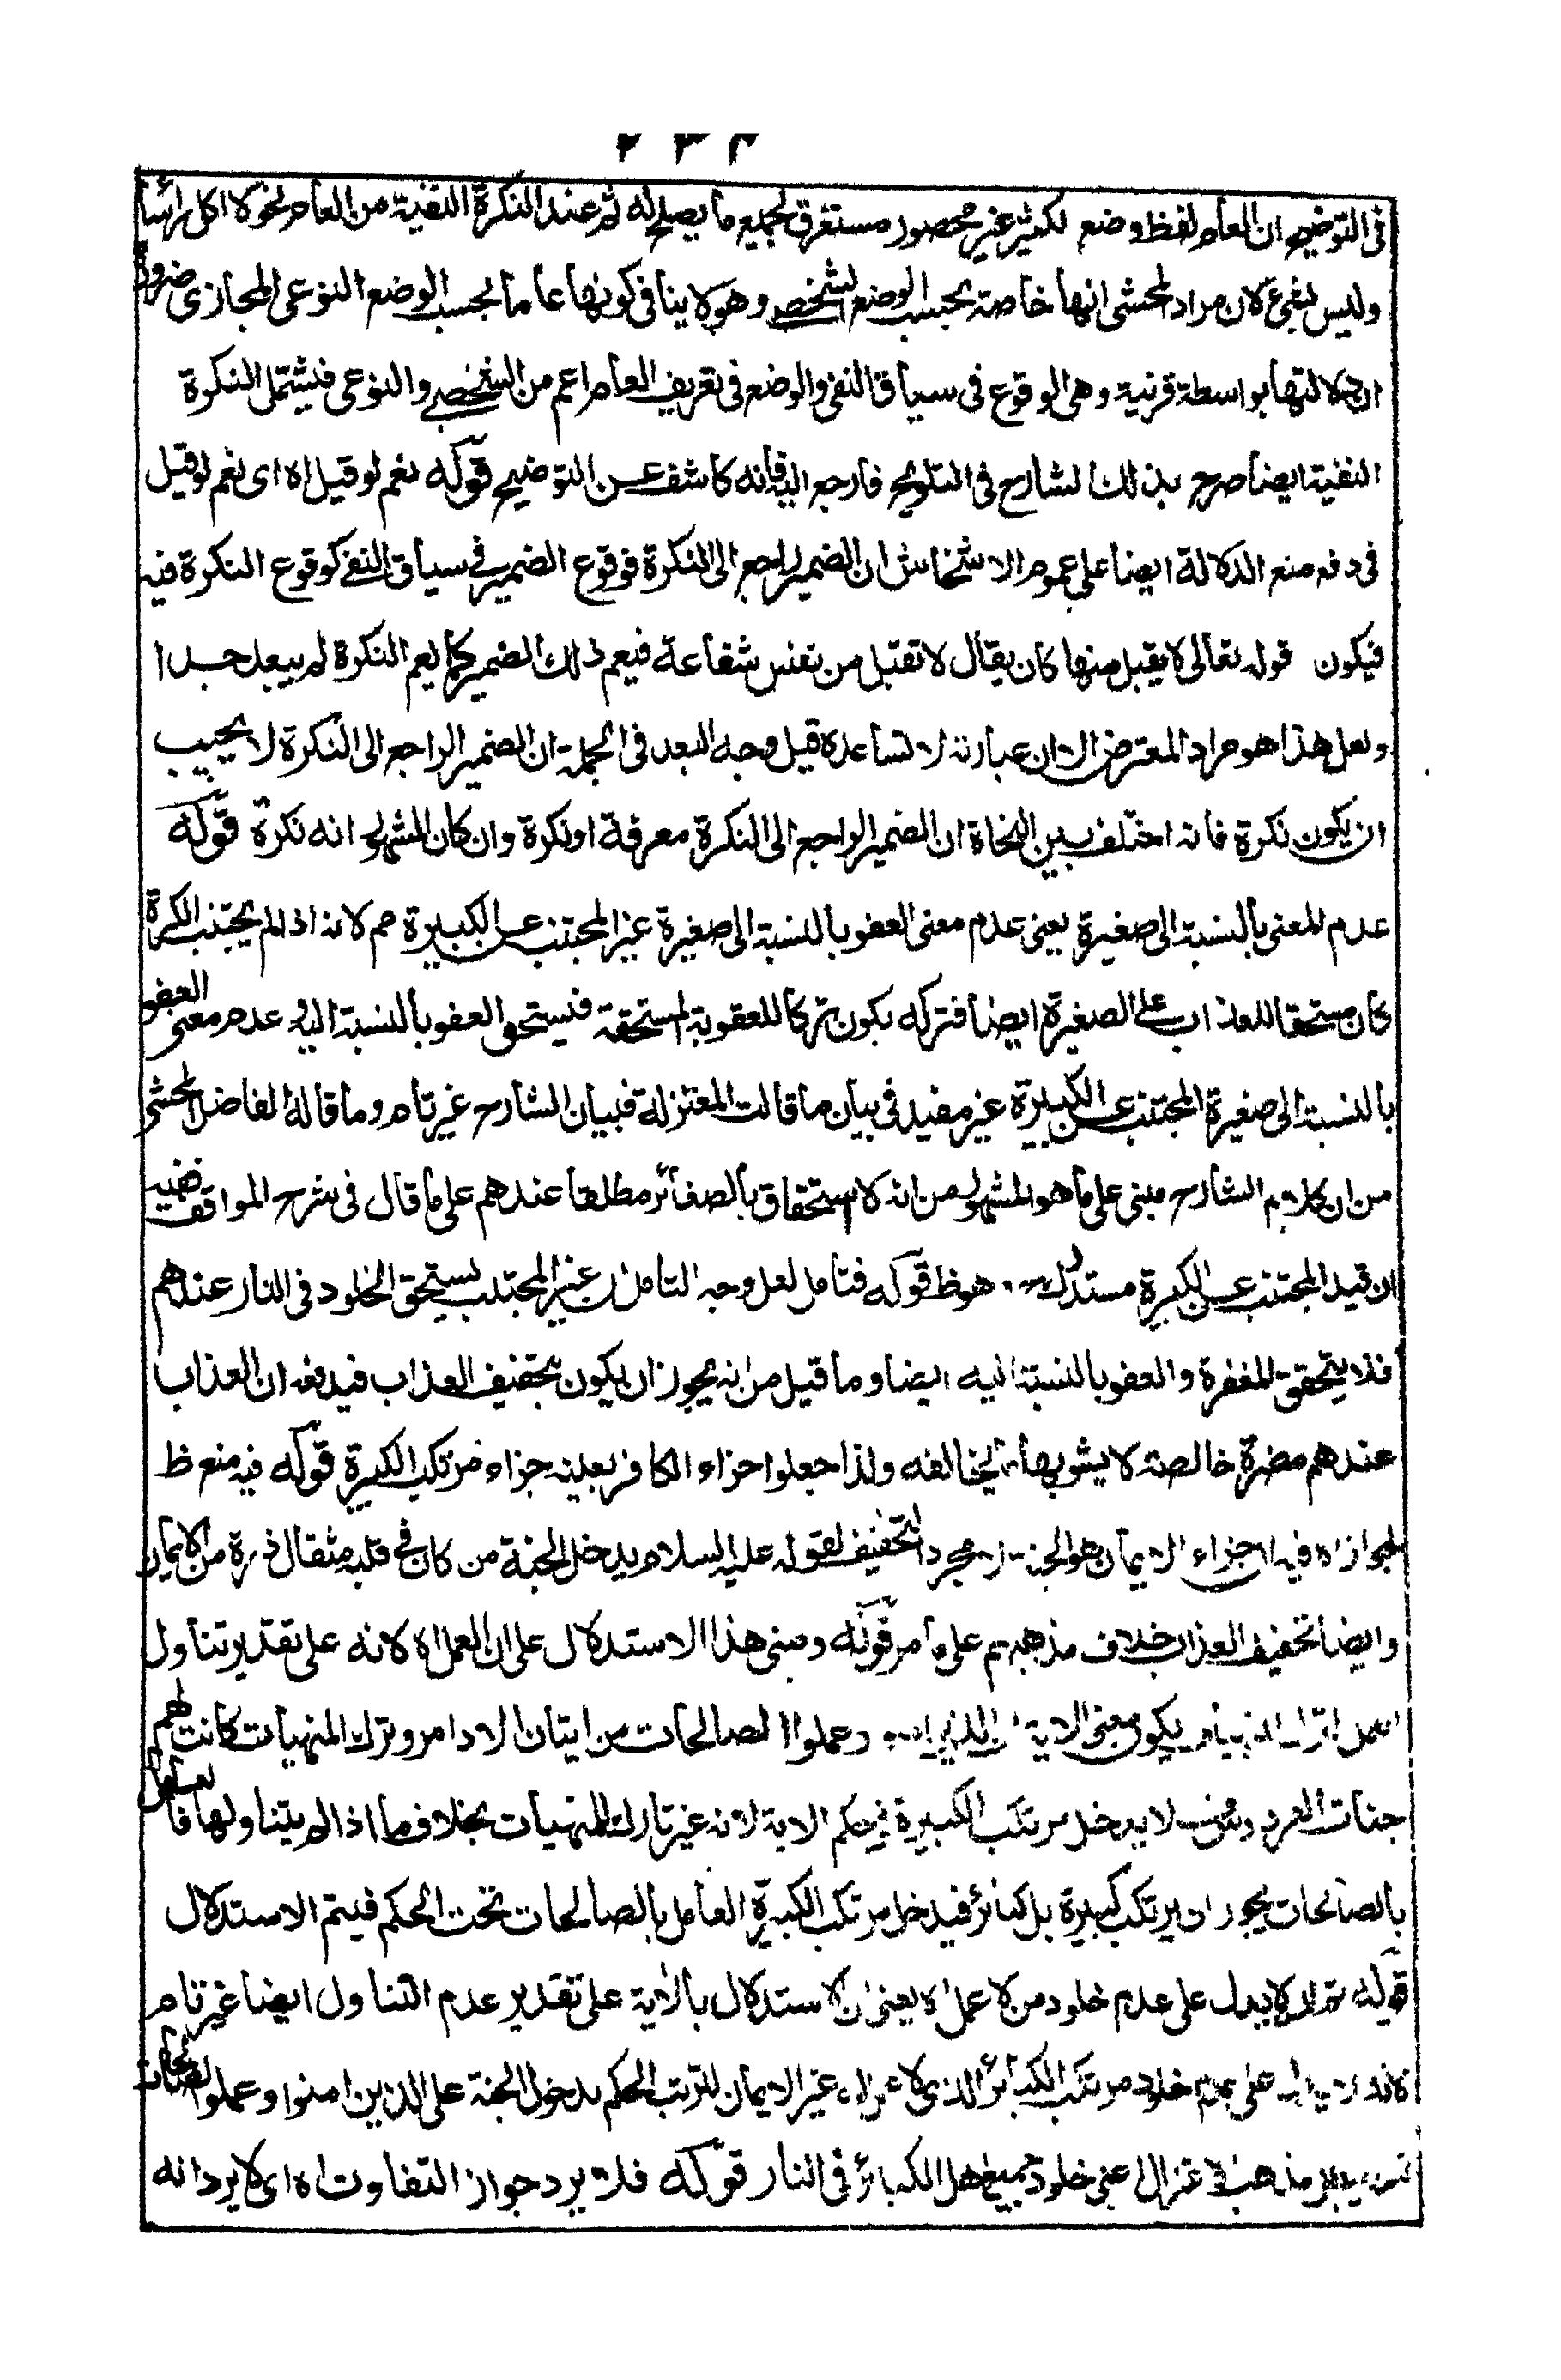 في التوضيح ان العام لفظ وضع لكثير غير محصور مستغرق لجميع ما يصلح له ثم عند النكرة النفية من العام نحو لا اكل رأسا
وليس بشئ لان مراد المحشي انها خاصة بحسب الوضع الشخصي وهو لا ينافي كونها عاما بحسب الوضع النوعي المجازي ضرورة
ان دلالتها بواسطة قرنية وهي الوقوع في سياق النفي والوضع في تعريف العام اعم من الشخصي والنوعي فيشتمل النكرة
النفية ايضا صرح بذلك الشارح في التلويح فارجع اليه فانه كاشف عن التوضيح قوله نعم لو قيل اه اى نعم لو قيل
في دفع منع الدلالة ايضا على عموم الاشخاص ان الضمير راجع الى النكرة فوقوع الضمير في سياق النفي كوقوع النكرة فيه
فيكون قوله تعالى لا يقبل منها كان يقال لا تقبل من نفس شفاعة فيعم ذلك الضمير كما يعم النكرة لم يبعد جدا
ولعل هذا هو مراد المعترض الا ان عبارته لا تساعده قيل وجه البعد في الجملة ان الضمير الراجع الى النكرة لا يجب
ان يكون نكرة فانه اختلف بين النحاة ان الضمير الراجع الى النكرة معرفة او نكرة وان كان المشهور انه نكرة قوله
عدم المعنى بالنسبة الى صغيرة يعني عدم معنى العفو بالنسبة الى صغيرة غير المجتنب عن الكبيرة مم لانه اذا لم يجتنب الكبيرة
كان مستحقا للعذاب على الصغيرة ايضا فتركه يكون تركا للعقوبة المستحقة فيستحق العفو بالنسبة اليه وعدم معنى العفو
بالنسبة الى صغيرة المجتنب عن الكبيرة غير مفيد في بيان ما قالت المعتزلة فبيان الشارح غير تام وما قاله الفاضل المحشي
من ان كلام الشارح مبني على ما هو المشهور من انه لا استحقاق بالصغائر مطلقا عندهم على ما قال في شرح المواقف ففيه
ان قيد المجتنب عن الكبيرة مستدرك هو ظ قوله فتامل لعل وجه التامل ان غير المجتنب يستحق الخلود في النار عندهم
فلا يتحقق المغفرة والعفو بالنسبة اليه ايضا وما قيل من انه يجوز ان يكون بتخفيف العذاب فيدفعه ان العذاب
عندهم مضرة خالصة لا يشوبها ما يخالفه ولذا جعلوا جزاء الكافر بعينه جزاء مرتكب الكبيرة قوله فيه منع ظ
لجوازه فيه ان جزاء الايمان هو الجنة لا مجرد التخفيف لقوله عليه السلام يدخل الجنة من كان في قلبه مثقال ذرة من الايمان
وايضا تخفيف العذاب خلاف مذهبهم على ما مر قوله ومبنى هذا الاستدلال على ان العمل اه لانه على تقدير تناول
العمل يكون معنى الاية وعملوا الصالحات من ايتان الاوامر وترك المنهيات كانت لهم
جنات الفردوس لا يدخل مرتكب الكبيرة في حكم الاية لانه غير تارك للمنهيات بخلاف ما اذا لم يتناولها فالعامل
بالصالحات يجوز ان يرتكب كبيرة بل كبائر فيدخل مرتكب الكبيرة العامل بالصالحات تحت الحكم فيتم الاستدلال
قوله لا يدل على عدم خلود من لا عمل له يعني ان الاستدلال بالاية على تقدير عدم التناول ايضا غير تام
لانه لا يدل على عدم خلود مرتكب الكبائر الذي لا عمل له غير الايمان لترتب الحكم بدخول الجنة على الذين امنوا وعملوا الصالحات
مذهب الاعتزال اعني خلود جميع اهل الكبائر في النار قوله فلا يرد جواز التفاوت اه اى لا يرد انه